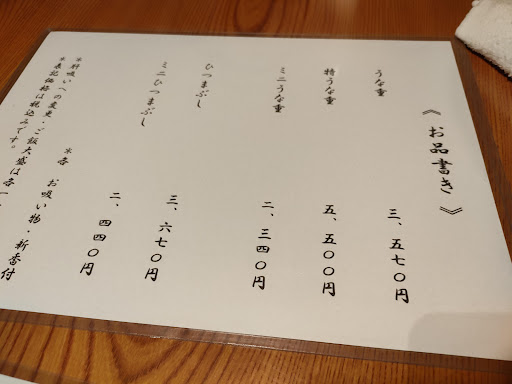 《お品書き》
うな重 三、五七〇円
特うな重 五、五〇〇円
ミニうな重 二、三四〇円
ひつまぶし 三、六七〇円
ミニひつまぶし 二、四四〇円
※各 お吸い物・新香付
※肝吸いへの変更・ご飯大盛は各一
※表記価格は税込みです。